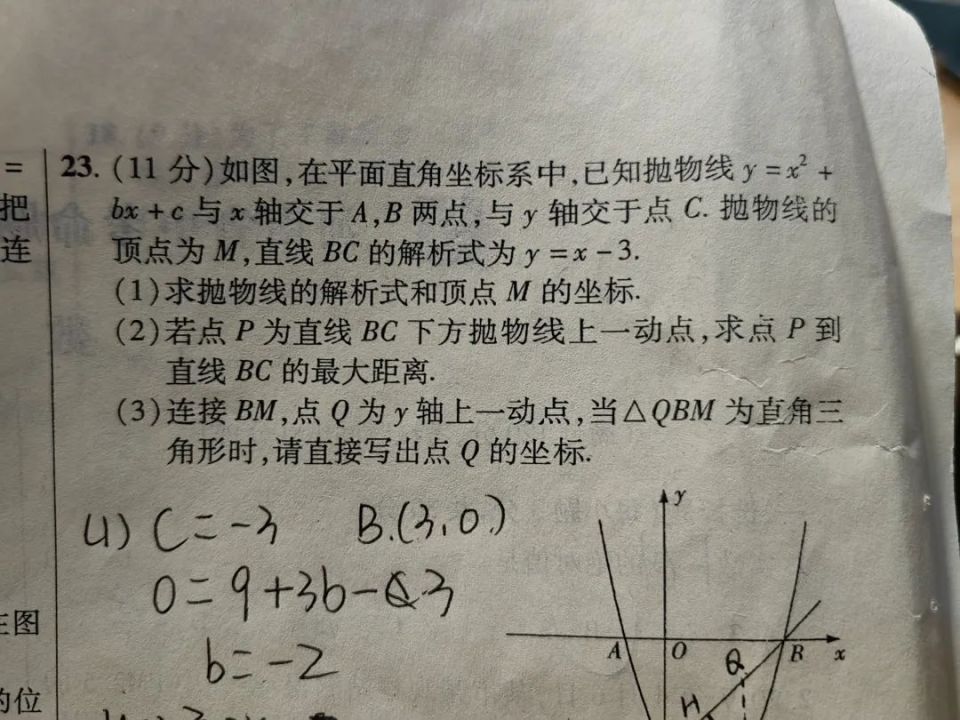 =
把
连
23.(11分)如图,在平面直角坐标系中,已知抛物线 y=x²+
bx+c与x轴交于A,B两点,与y轴交于点C.抛物线的
顶点为M,直线BC的解析式为y=x-3.
(1)求抛物线的解析式和顶点M的坐标.
(2)若点P为直线BC下方抛物线上一动点,求点P到
直线BC的最大距离.
(3)连接BM,点Q为y轴上一动点,当△QBM为直角三
角形时,请直接写出点Q的坐标.
(1) C=-3 B(3,0)
0=9+3b-3
b=-2
y
A O B x
Q
H
图
的位